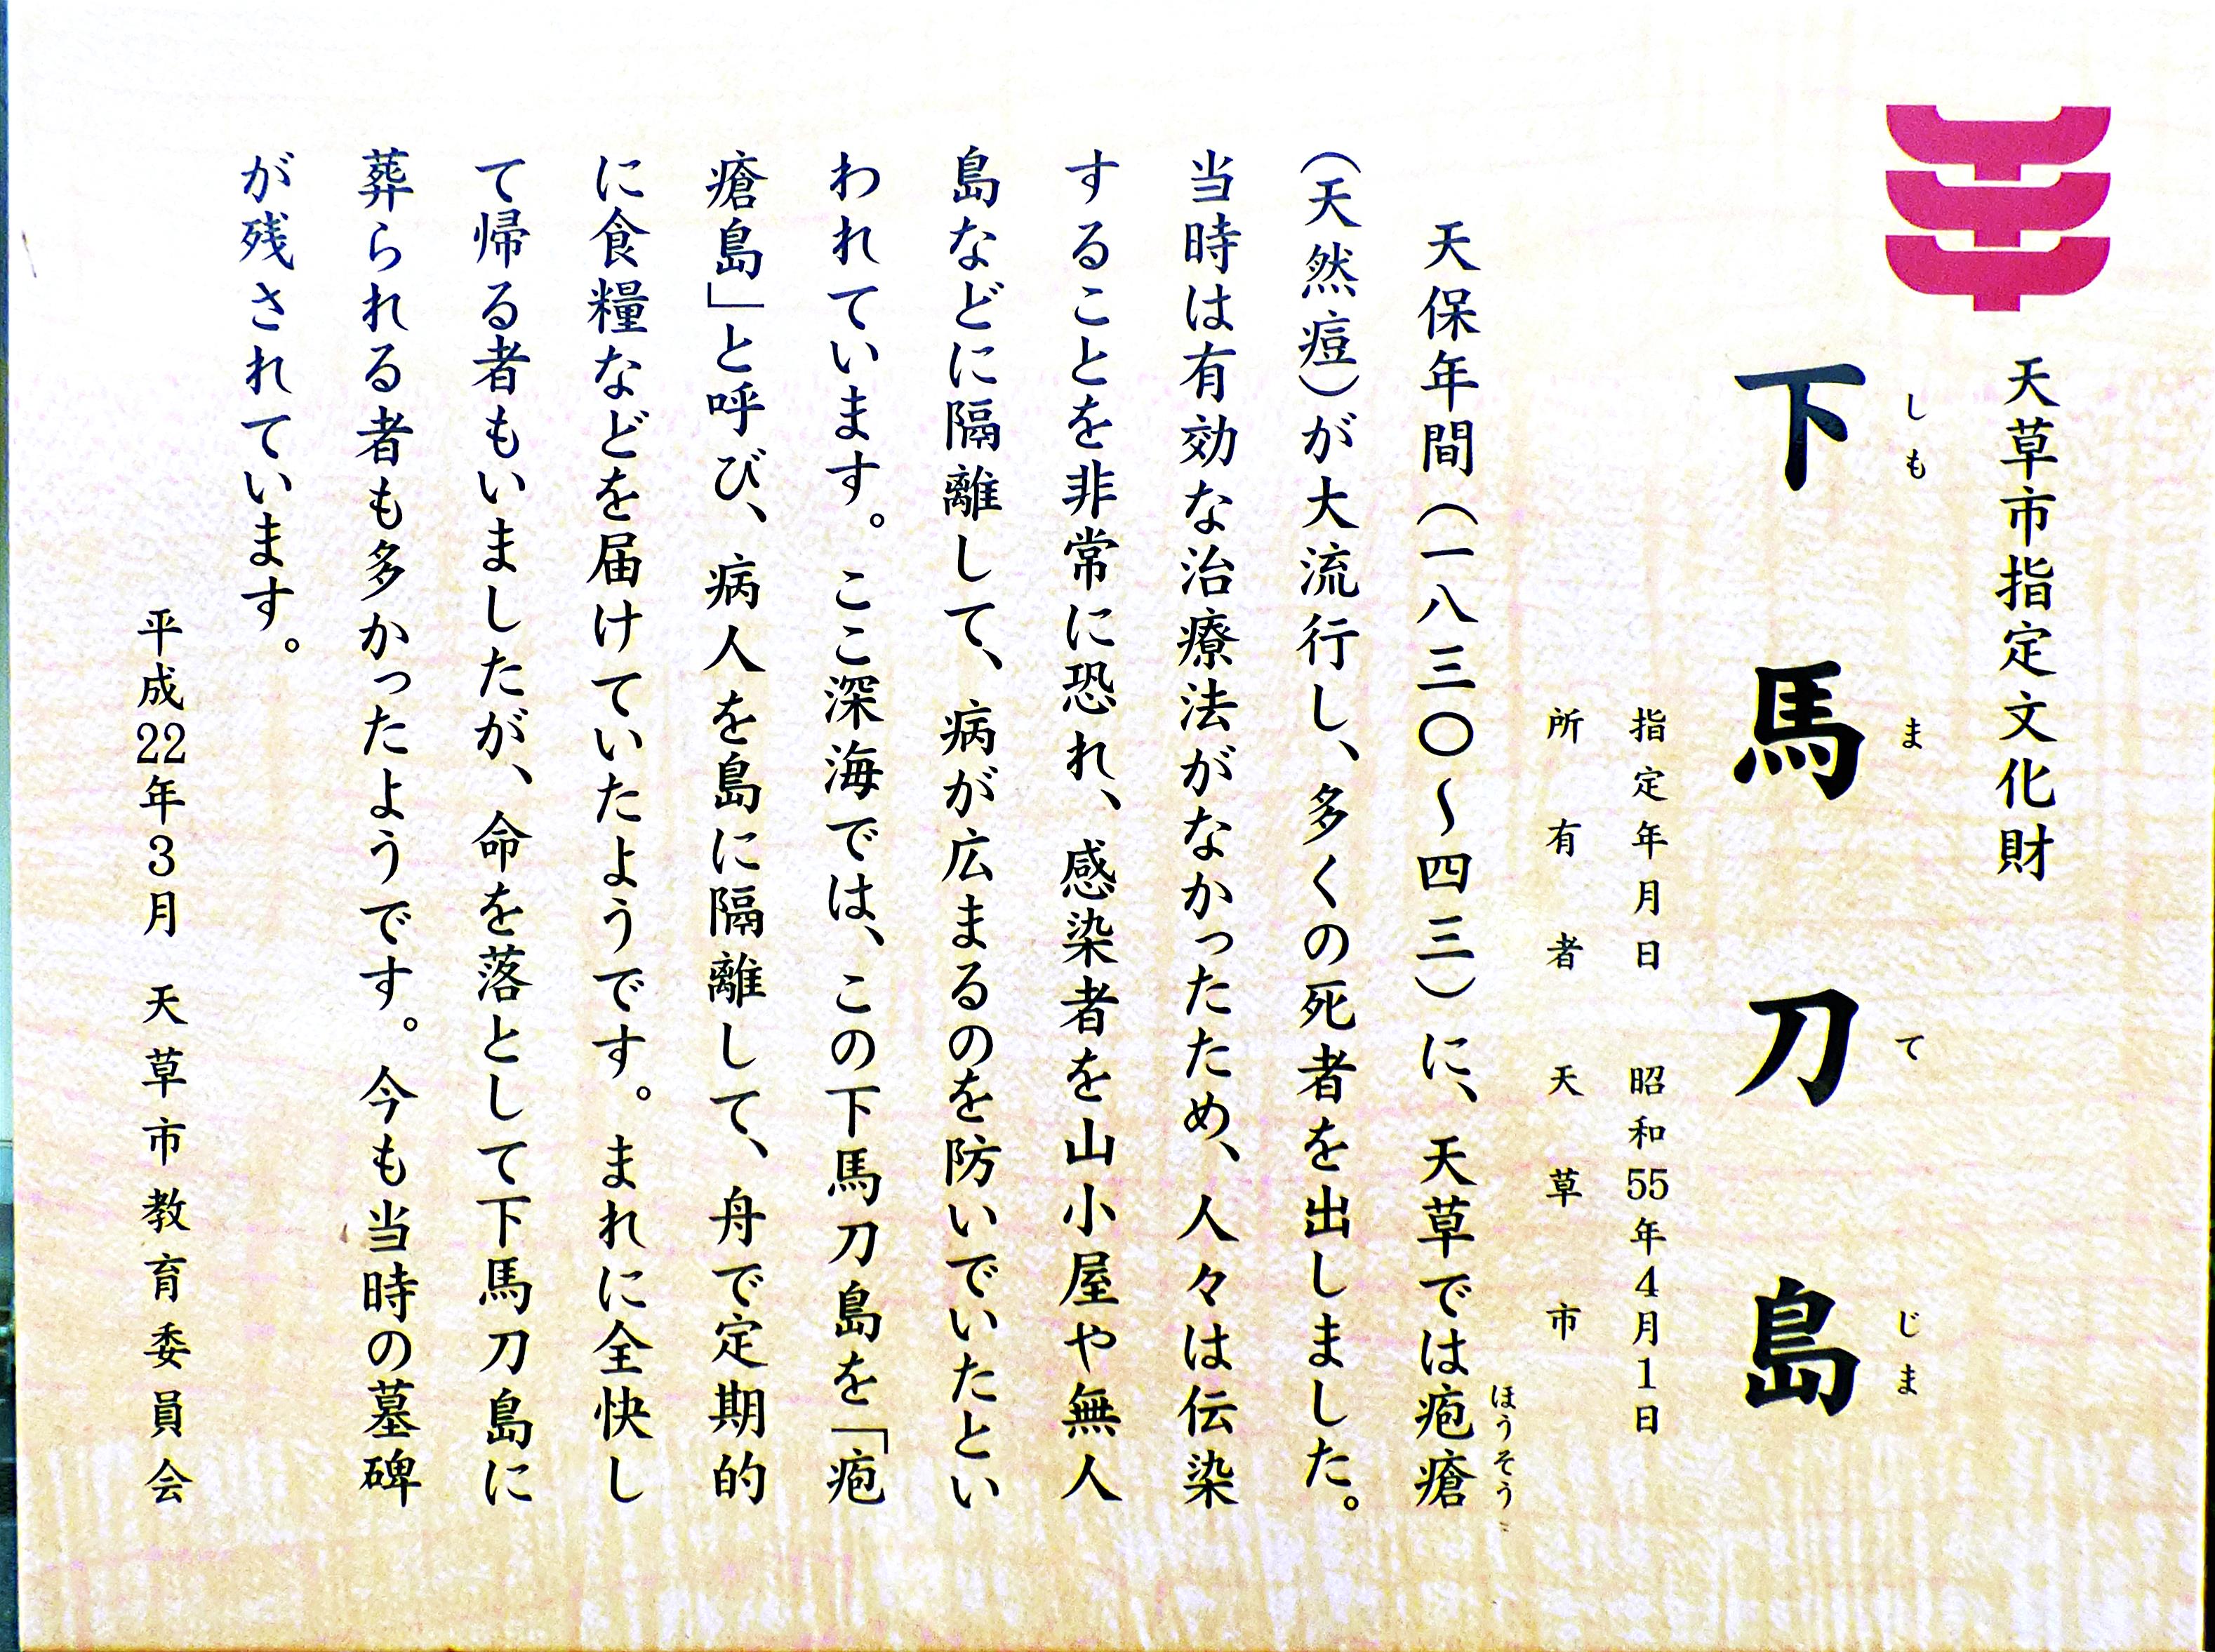 天草市指定文化財
しもまてじま
下馬刀島
指定年月日 昭和55年4月1日
所有者 天草市
ほうそう
天保年間(一八三〇〜四三)に、天草では疱瘡
(天然痘)が大流行し、多くの死者を出しました。
当時は有効な治療法がなかったため、人々は伝染
することを非常に恐れ、感染者を山小屋や無人
島などに隔離して、病が広まるのを防いでいたとい
われています。ここ深海では、この下馬刀島を「疱
瘡島」と呼び、病人を島に隔離して、舟で定期的
に食糧などを届けていたようです。まれに全快し
て帰る者もいましたが、命を落として下馬刀島に
葬られる者も多かったようです。今も当時の墓碑
が残されています。
平成22年3月 天草市教育委員会